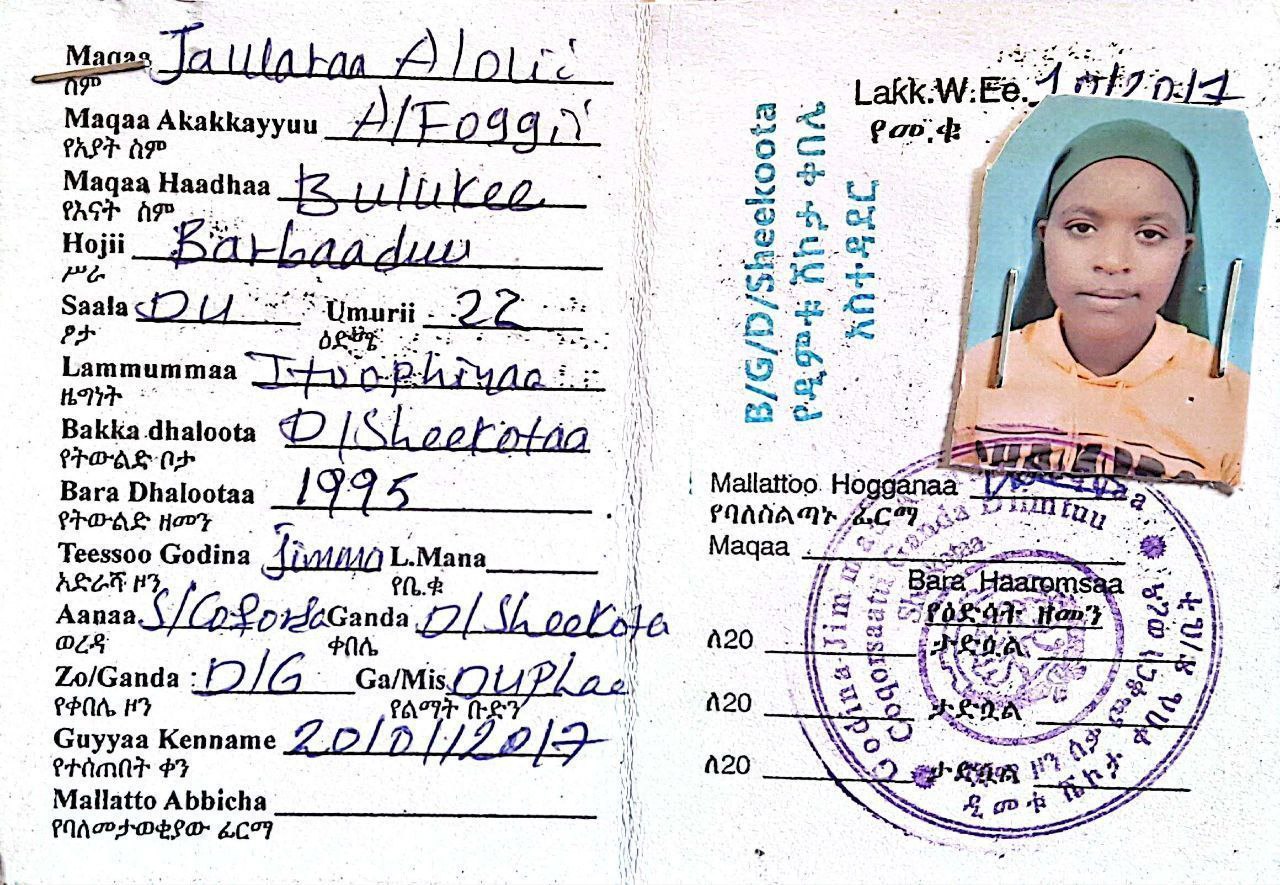 Maqaa Jawaraa A/Olii
ስም
Maqaa Akakkayyuu A/Foggii
የአያት ስም
Maqaa Haadhaa Bulukee
የእናት ስም
Hojii Barbaaduu
ሥራ
Saala DU Umurii 22
ፆታ ዕድሜ
Lammummaa Itoophiyaa
ዜግነት
Bakka dhaloota D/Sheekotaa
የትውልድ ቦታ
Bara Dhalootaa 1995
የትውልድ ዘመን
Teessoo Godina Jimma L.Mana
አድራሻ ዞን የቤ.ቁ
Aanaa Ganda D/Sheekota
ወረዳ ቀበሌ
Zo/Ganda : D/G Ga/Mis
የቀበሌ ዞን የልማት ቡድን
Guyyaa Kenname 20/01/2017
የተሰጠበት ቀን
Mallatto Abbicha
የባለመታወቂያው ፊርማ
B/G/D/Sheekoota
የዲምቱ ሸኮታ ቀበሌ
አስተዳደር
Lakk.W.Ee. 10/2017
የመ.ቁ
Mallattoo Hogganaa
የባለስልጣኑ ፊርማ
Maqaa
Bara Haaromsaa
የዕድሳት ዘመን
ለ20 ታድሷል
ለ20 ታድሷል
ለ20 ታድሷል
Godina Jimmaa
Ganda Diimtuu